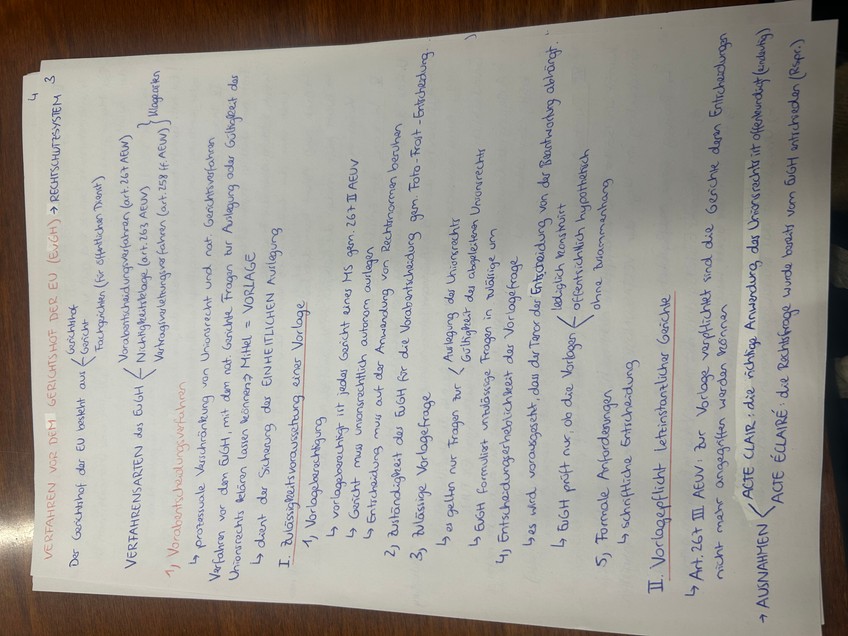 4
3
VERFAHREN VOR DEM GERICHTSHOF DER EU (EuGH) → RECHTSCHUTZSYSTEM
Der Gerichtshof der EU besteht aus < Gerichtshof
Gericht
Fachgerichten (für öffentlichen Dienst)
VERFAHRENSARTEN des EuGH < Vorabentscheidungsverfahren (art. 267 AEUV)
Nichtigkeitsklage (art. 263 AEUV) } Klagearten
Vertragsverletzungsverfahren (art. 258 ff AEUV)
1, Vorabentscheidungsverfahren
↳ prozessuale Verschränkung von Unionsrecht und nat. Gerichtsverfahren
Verfahren vor dem EuGH, mit dem nat. Gerichte Fragen zur Auslegung oder Gültigkeit des
Unionsrechts klären lassen können → Mittel = VORLAGE
↳ dient der Sicherung der EINHEITLICHEN Auslegung
I. Zulässigkeitsvoraussetzung einer Vorlage
1, Vorlageberechtigung
↳ vorlageberechtigt ist jedes Gericht eines MS gem. 267 II AEUV
↳ Gericht muss unionsrechtlich autonom auslegen
↳ Entscheidung muss auf der Anwendung von Rechtsnormen beruhen
2, Zuständigkeit des EuGH für die Vorabentscheidung gem. Foto-Frost-Entscheidung
3, Zulässige Vorlagefrage
↳ es gelten nur Fragen zur < Auslegung des Unionsrechts
Gültigkeit des abgeleiteten Unionsrechts
↳ EuGH formuliert unzulässige Fragen in zulässige um
4, Entscheidungserheblichkeit der Vorlagefrage
↳ es wird vorausgesetzt, dass der Tenor der Entscheidung von der Beantwortung abhängt."
↳ EuGH prüft nur, ob die Vorlagen < lediglich konstruiert
offensichtlich hypothetisch
ohne Zusammenhang
5, Formale Anforderungen
↳ schriftliche Entscheidung
II. Vorlagepflicht letztinstanzlicher Gerichte
↳ Art. 267 III AEUV: zur Vorlage verpflichtet sind die Gerichte deren Entscheidungen
nicht mehr angegriffen werden können
→ AUSNAHMEN < ACTE CLAIR: die richtige Anwendung des Unionsrechts ist offenkundig (eindeutig)
ACTE ÉCLAIRÉ: die Rechtsfrage wurde bereits vom EuGH entschieden (Rspr.)